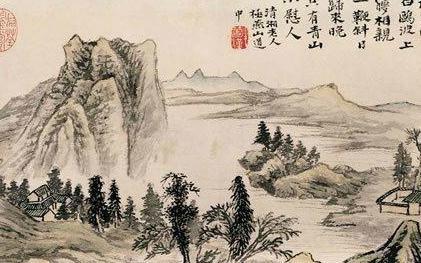 鷗波上
相親
鞭斜日
歸來晚
有青山
慰人
清湘老人
極燕山道
中